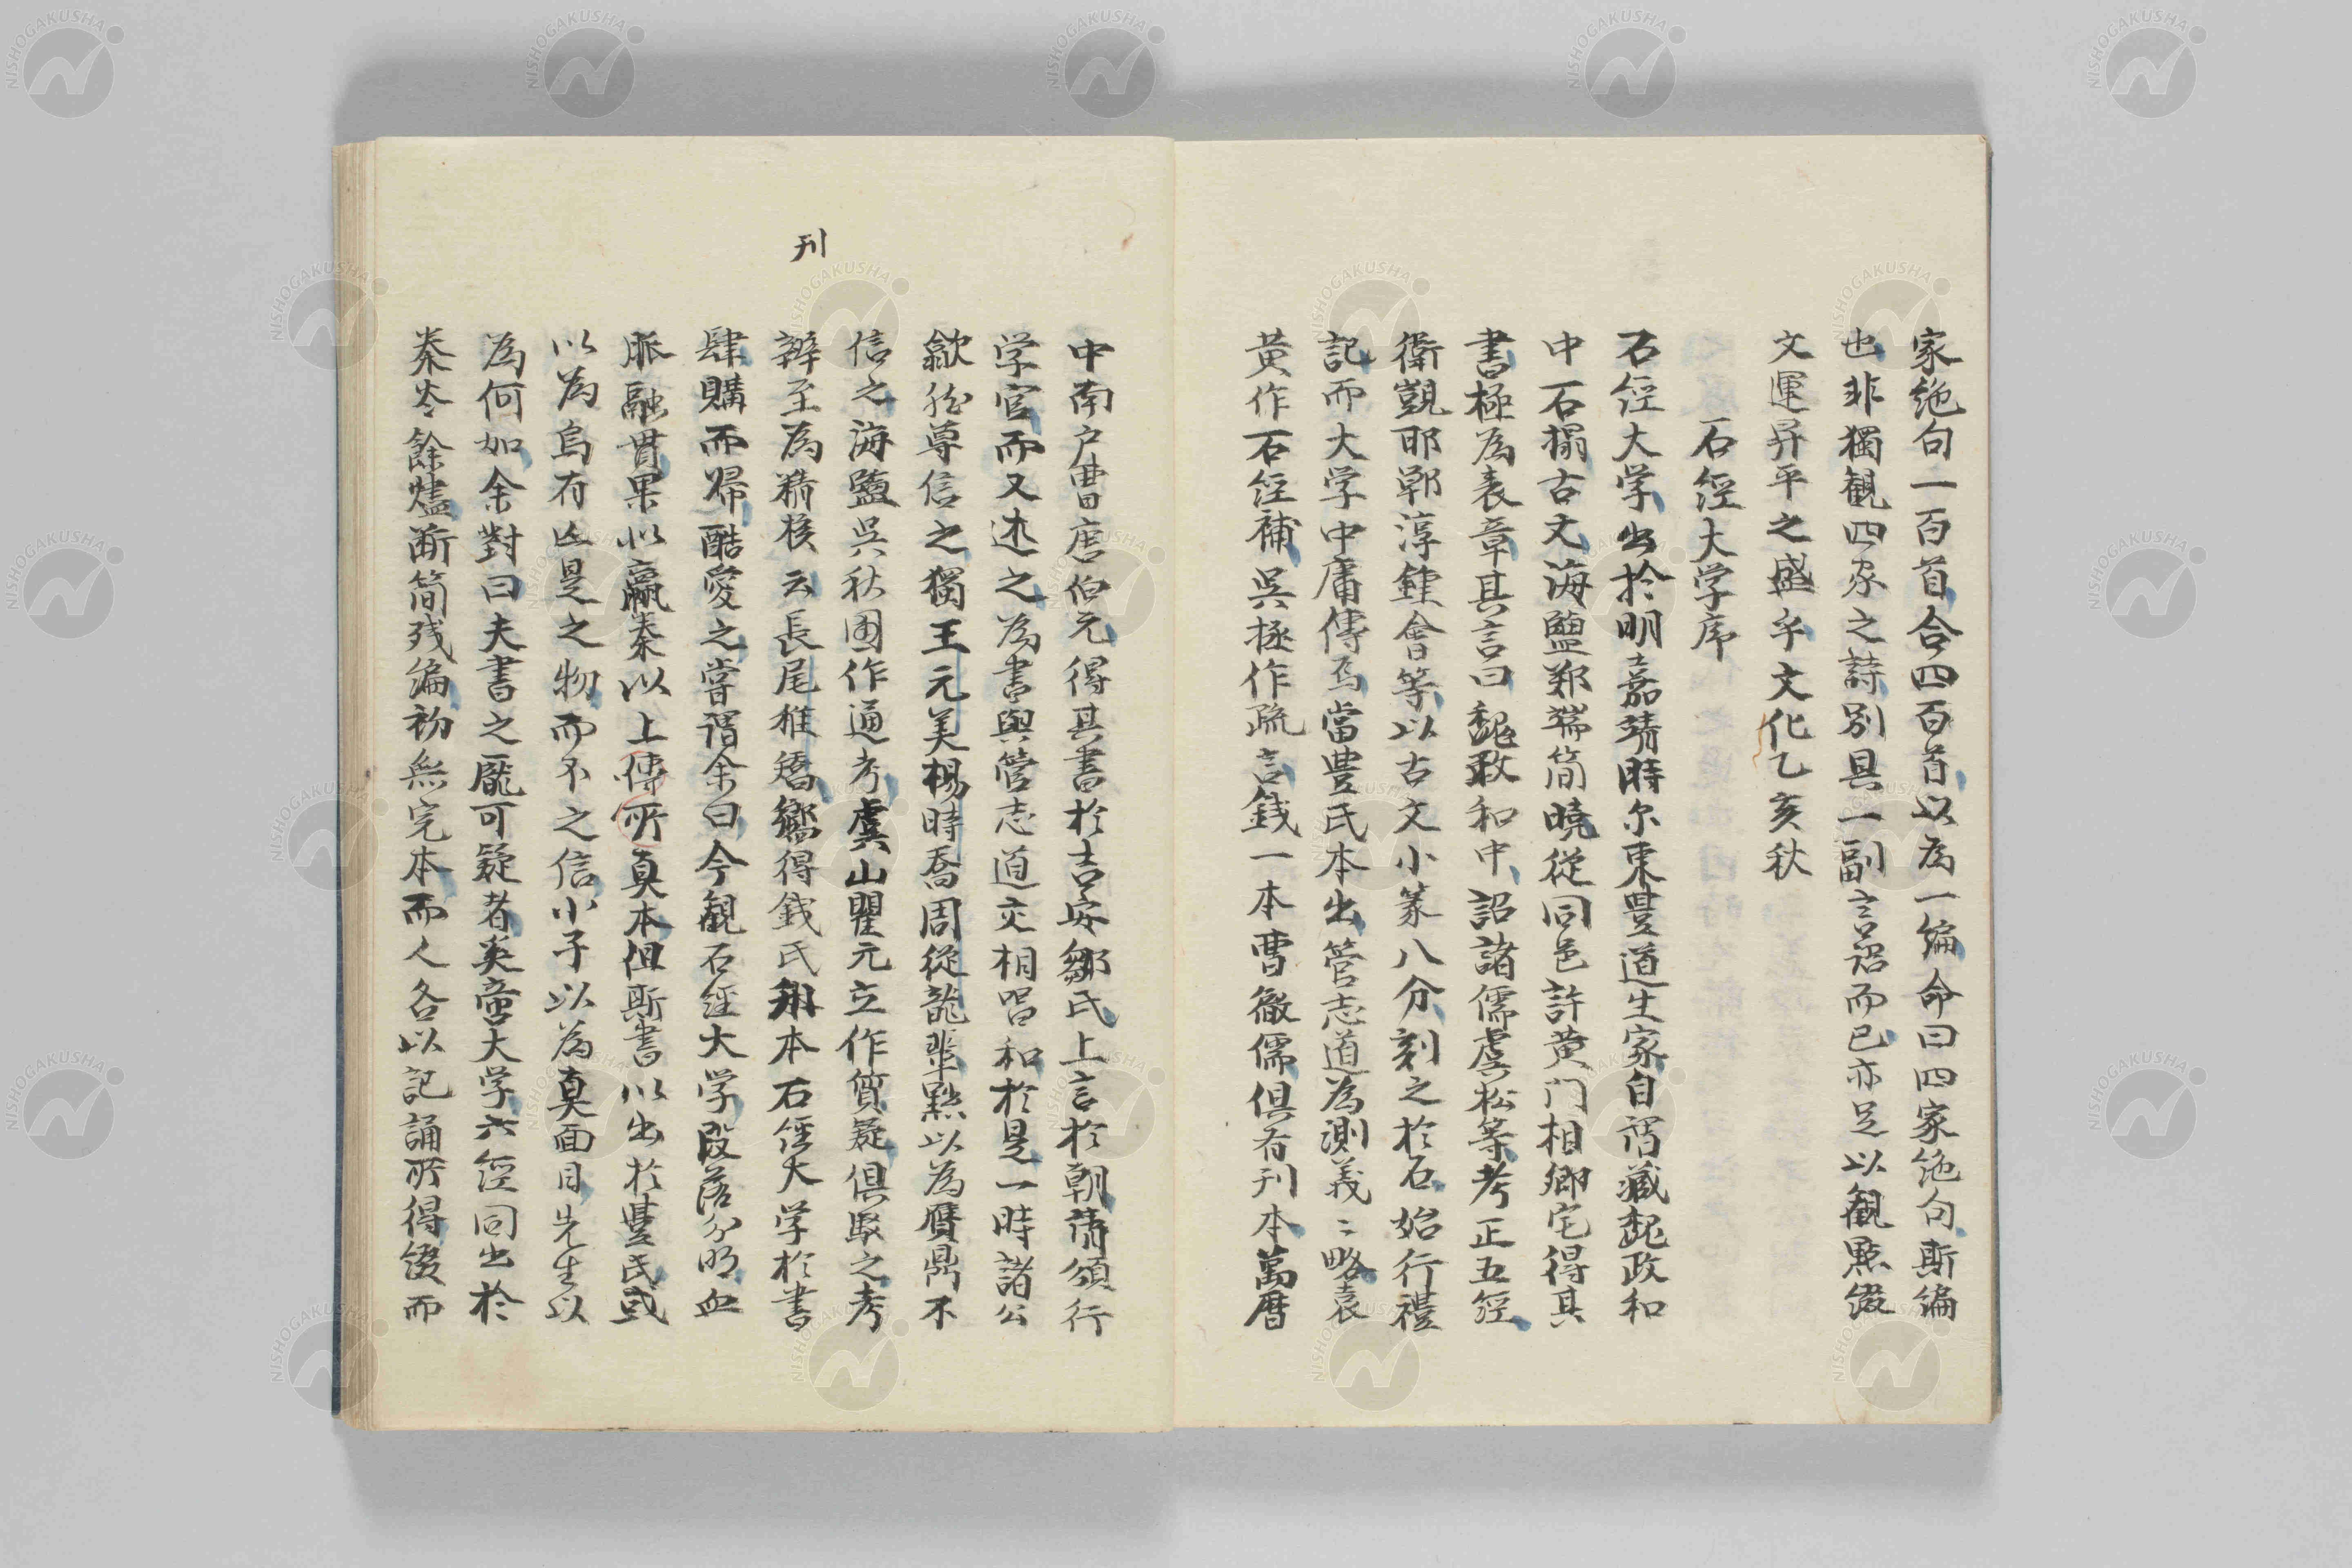 家絶句一百首合四百首以為一編命曰四家絶句斯編
也非獨観四家之詩別具一副言語而已亦足以観㸃綴
文運昇平之盛乎文化乙亥秋
石經大学序
石經大学出於明嘉靖時尓東豊道生家自謂藏魏政和
中石搨古文海鹽鄭端簡曉從同邑許黄门相卿宅得其
書極為表章其言曰魏政和中詔諸儒虞松等考正五經
衛覬邯鄲淳鍾會等以古文小篆八分刻之於石始行禮
記而大学中庸傳焉當豊氏本出管志道為測義〻略袁
黄作石经補呉極作疏言銭一本曹徹儒倶有刊本萬暦
中南户曹唐伯元得其書於吉安鄒氏上言於朝請頒行
学官而又述之為書與管志道交相唱和於是一時諸公
歙然尊信之獨王元美楊時喬周從龍輩黙以為贋鼎不
信之海鹽呉秋圃作通考虞山瞿元立作質疑倶駁之考
辨至為精核云長尾稚矯嚮得銭氏刊本石経大学於書
肆購而帰酷愛之嘗謂余曰今観石經大学段落分明血
脈融貫果似嬴秦以上傳所真本但斯書以出於豊氏或
以為烏有亡是之物而不之信小子以為真面目先生以
為何如余對曰夫書之厖可疑者奚啻大学六經同出於
秦火餘燼断简残編初無完本而人各以記誦所得綴而
刊